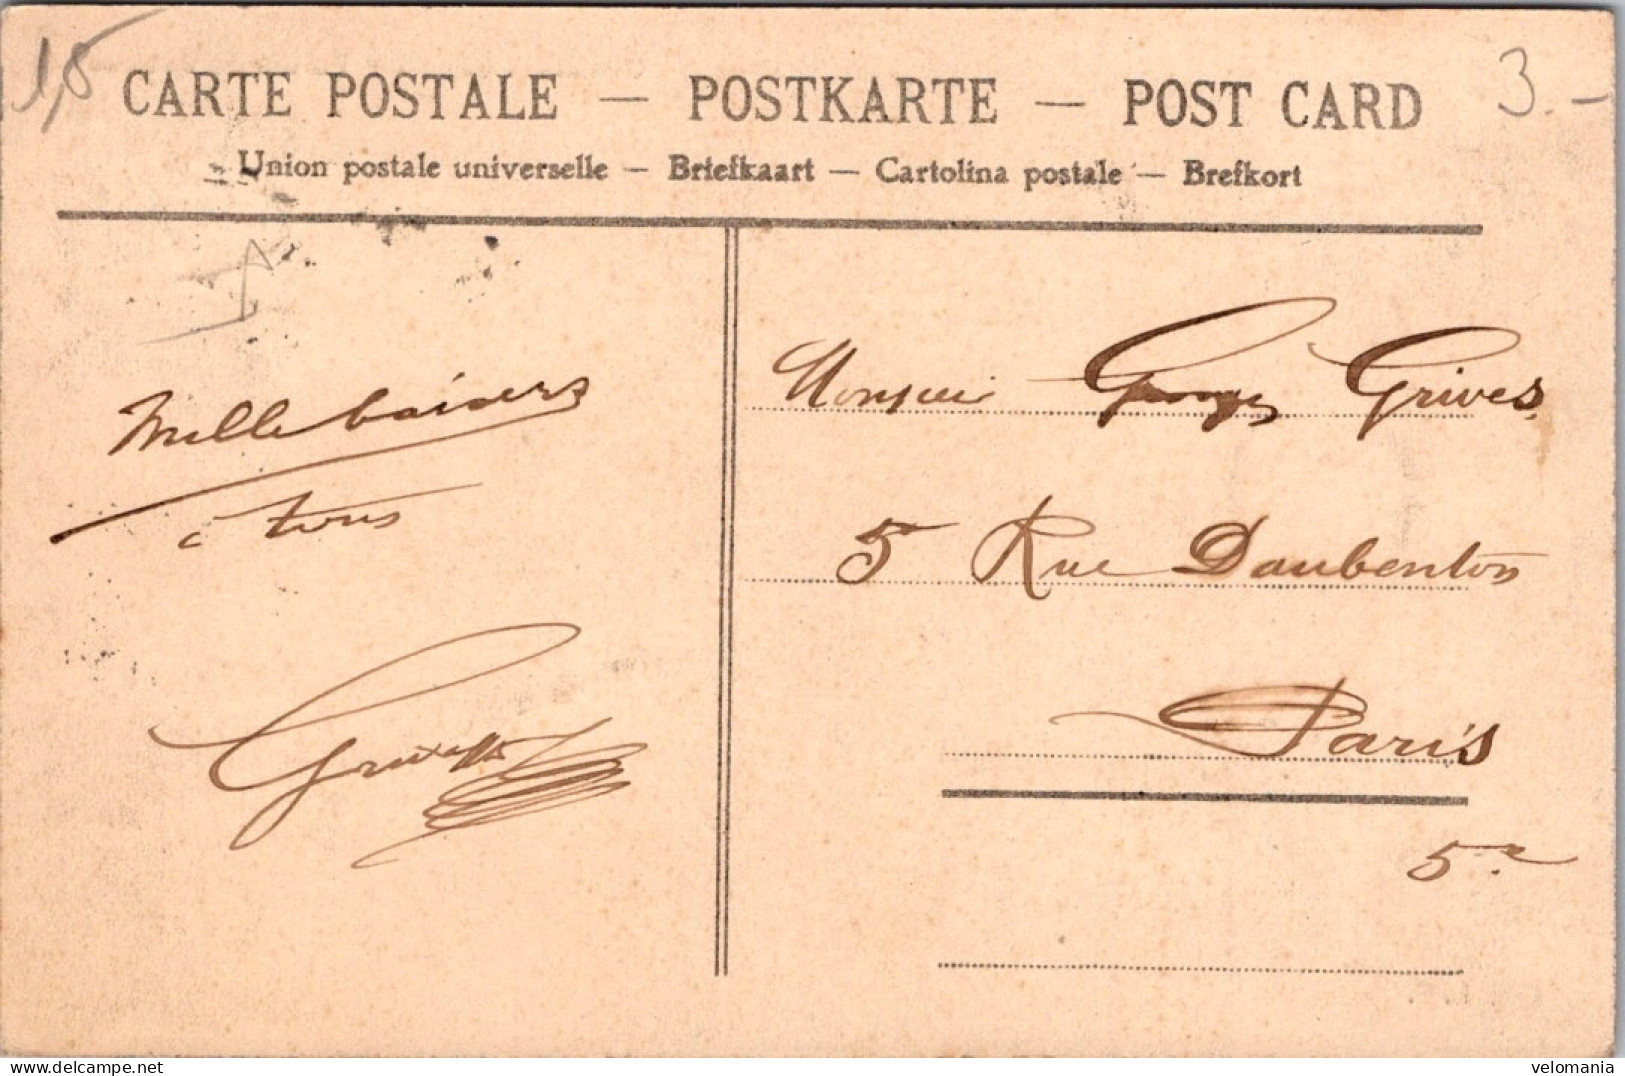 1,5
CARTE POSTALE — POSTKARTE — POST CARD
3.-
Union postale universelle — Briefkaart — Cartolina postale — Brefkort
Mille baisers
à tous
Monsieur Georges Grives
5 Rue Daubenton
Paris
5e
delcampe.net
velomania